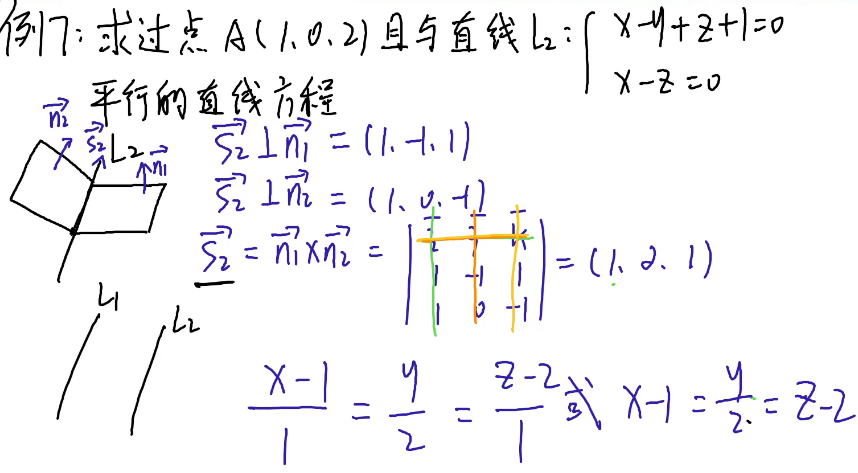 例17:求过点 A(1,0,2)且与直线L₂:{ x-y+z+1=0
x-z=0
平行的直线方程
n₂ s₂ L₂ n₁
s₂⊥n₁=(1,-1,1)
s₂⊥n₂=(1,0,-1)
s₂=n₁×n₂=| i j k |
| 1 -1 1 | =(1,2,1)
| 1 0 -1 |
L₁ L₂
(x-1)/1 = y/2 = (z-2)/1 x-1 = y/2 = z-2